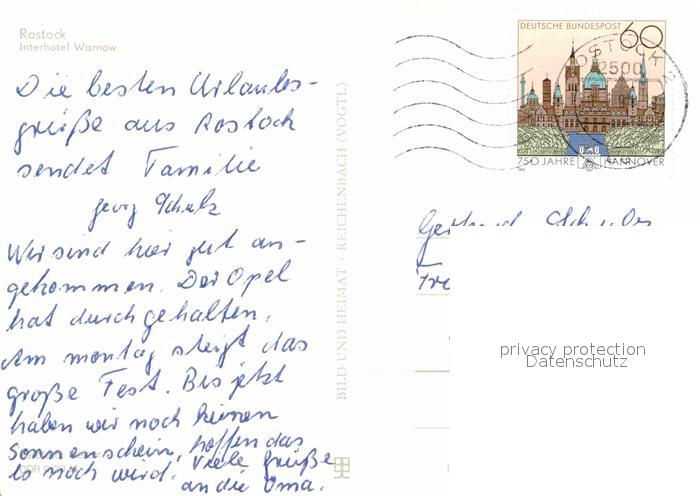 Rostock
Interhotel Warnow
Die besten Urlaubs-
grüße aus Rostock
sendet Familie
Georg Schulz
Wir sind hier gut an-
gekommen. Der Opel
hat durchgehalten.
Am montag steigt das
große Fest. Bis jetzt
haben wir noch keinen
Sonnenschein, hoffen das
es noch wird. Viele Grüße
an die Oma.
BILD UND HEIMAT · REICHENBACH (VOGTL)
DEUTSCHE BUNDESPOST 60
ROSTOCK
2500
750 JAHRE HANNOVER
privacy protection
Datenschutz